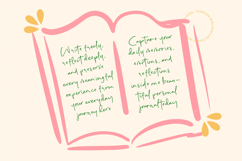 Write freely,
reflect deeply,
and preserve
every meaningful
experience from
your everyday
journey here
Capture your
daily memories,
emotions, and
reflections
inside one beau-
tiful personal
journal today